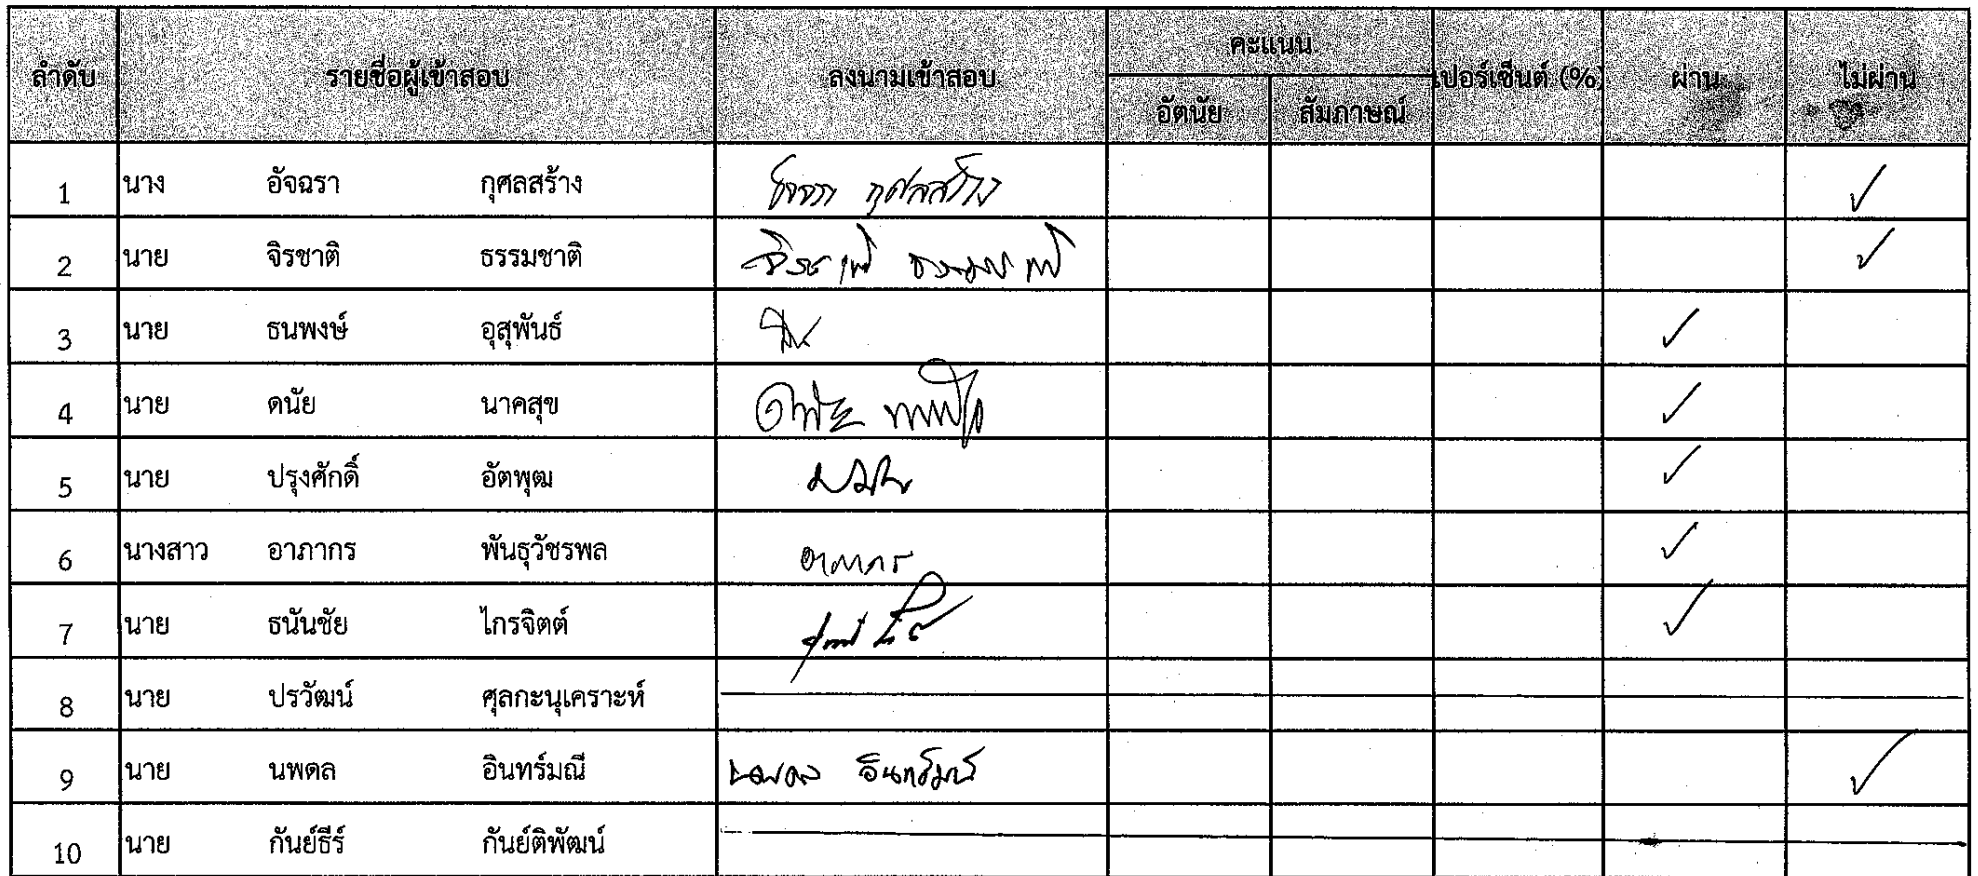 ลำดับ รายชื่อผู้เข้าสอบ ลงนามเข้าสอบ คะแนน เปอร์เซ็นต์ (%) ผ่าน ไม่ผ่าน
อัตนัย สัมภาษณ์
1 นาง อัจฉรา กุศลสร้าง อัจฉรา กุศลสร้าง ✓
2 นาย จิรชาติ ธรรมชาติ จิรชาติ ธรรมชาติ ✓
3 นาย ธนพงษ์ อุสุพันธ์ ✓
4 นาย ดนัย นาคสุข ดนัย ✓
5 นาย ปรุงศักดิ์ อัตพุฒ ✓
6 นางสาว อาภากร พันธุวัชรพล อาภากร ✓
7 นาย ธนันชัย ไกรจิตต์ ✓
8 นาย ปรวัฒน์ ศุลกะนุเคราะห์
9 นาย นพดล อินทร์มณี นพดล อินทร์มณี ✓
10 นาย กันย์ธีร์ กันย์ติพัฒน์